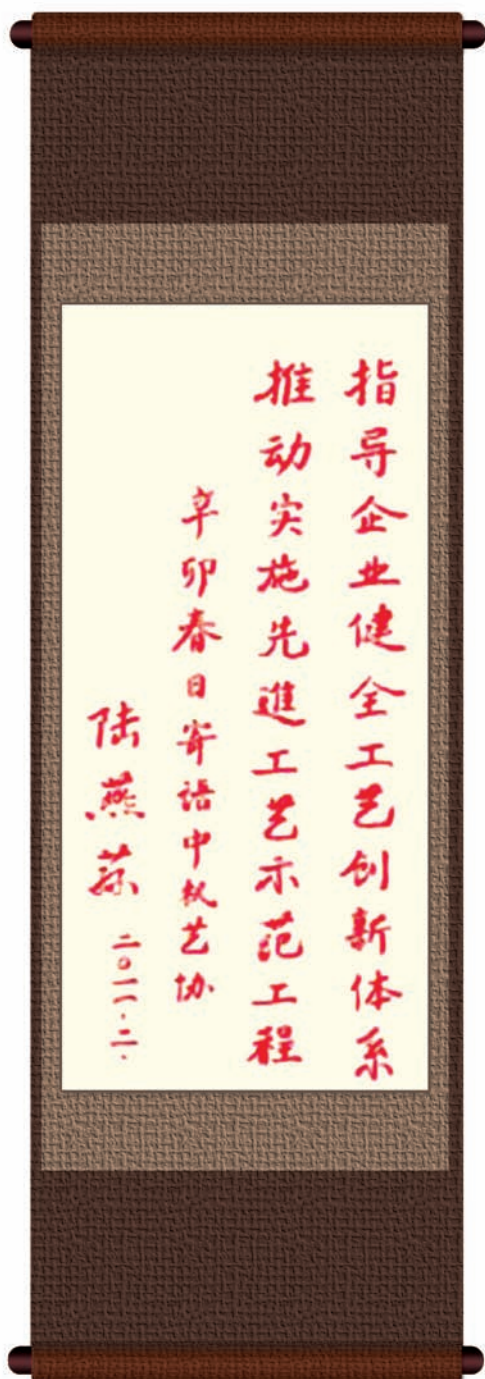 指导企业健全工艺创新体系
推动实施先進工艺示范工程
辛卯春日寄语中机艺协
陆燕荪
二〇一一·二·